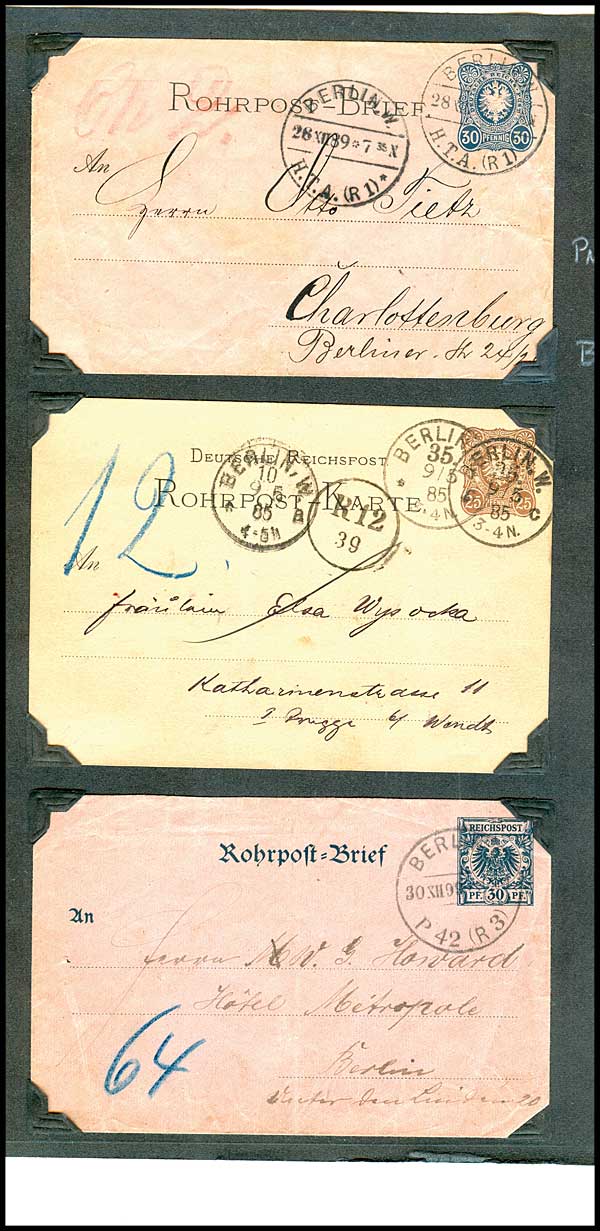 BERLIN.W.
28 XII 89 * 7 35 X
H.T.A. (R1) *
BERLIN.W.
H.T.A. (R1)
30 PFENNIG 30
ROHRPOST-BRIEF
An
Herrn Otto Tietz
Charlottenburg
Berliner-Str 24
PN
B
DEUTSCHE REICHSPOST
ROHRPOST-KARTE
12.
BERLIN, W.
10
9/5
85
4-5N
R 12
39
BERLIN
35
9/5
85
3.4N.
BERLIN.W.
35
9/5
85 c
3-4N.
25 25
An
Fräulein Elsa Wysocka
Katharinenstrasse 11
I Treppe b/ Wendt
Rohrpost=Brief
REICHSPOST
PF. 30 PF.
BERLIN
30 XII 99
P 42 (R3)
An
Herrn W. G Howard
Hôtel Métropole
Berlin
Unter den Linden 20
64